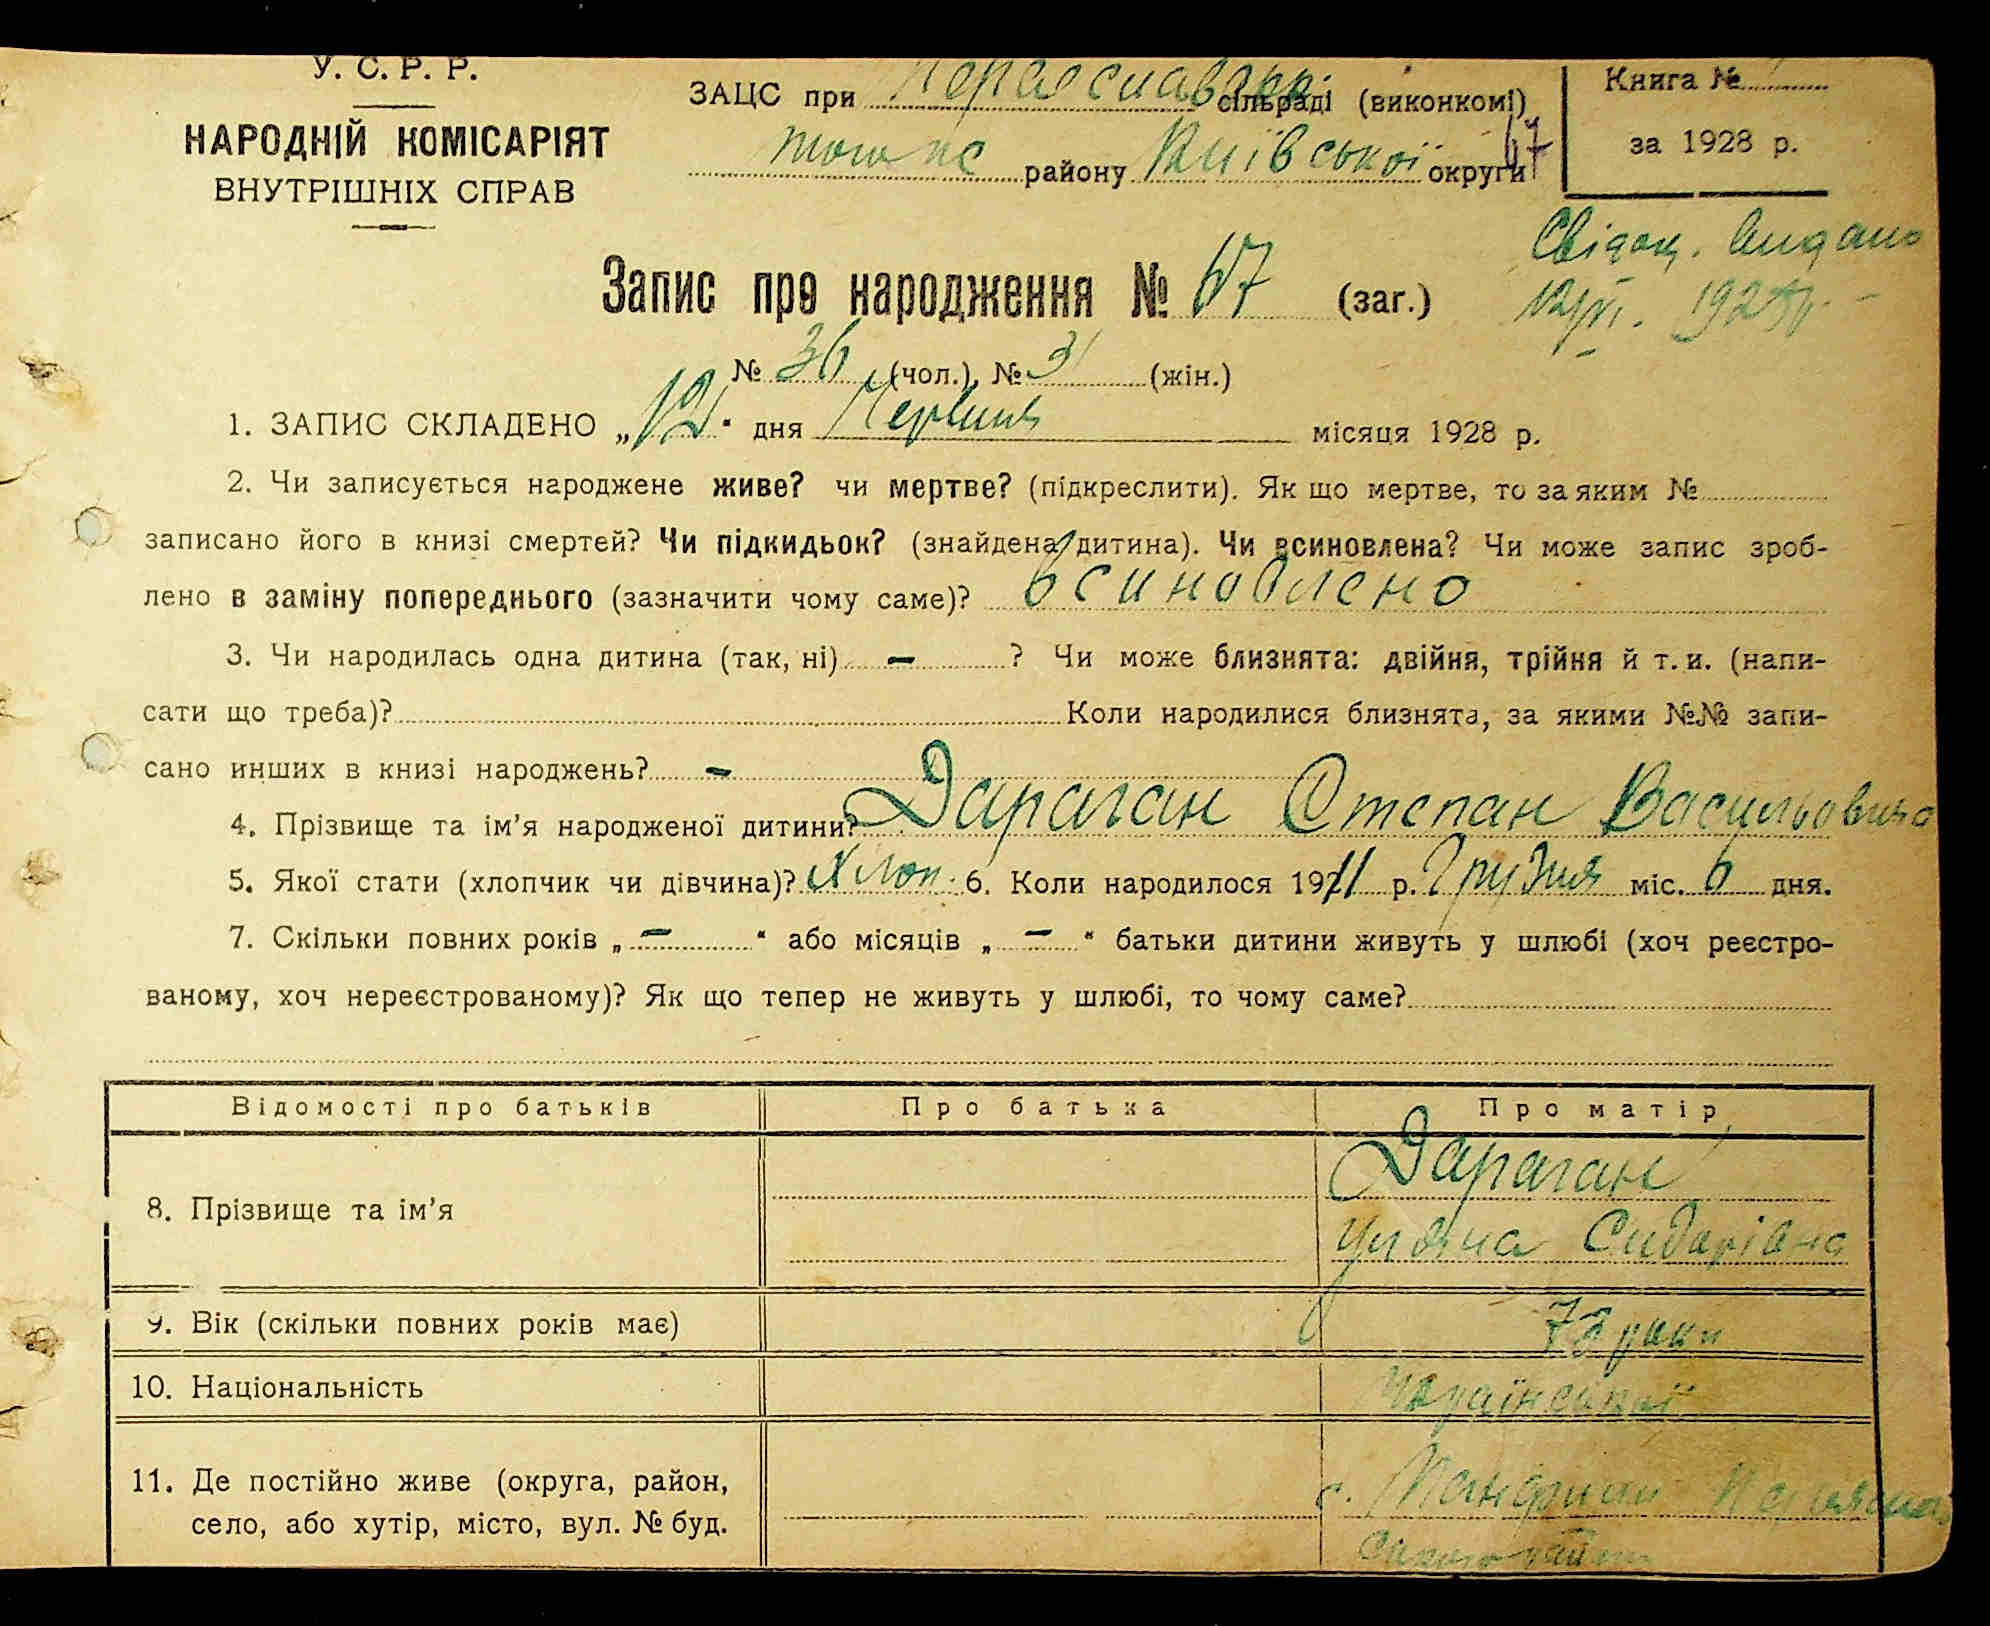 У. С. Р. Р.
НАРОДНІЙ КОМІСАРІЯТ
ВНУТРІШНІХ СПРАВ
ЗАЦС при сільраді (виконкомі)
району Київської округи 67
Книга №
за 1928 р.
Свідоц. видано
Запис про народження № 67 (заг.)
№ 36 (чол.), № 31 (жін.)
1. ЗАПИС СКЛАДЕНО „12“ дня Червня місяця 1928 р.
2. Чи записується народжене живе? чи мертве? (підкреслити). Як що мертве, то за яким №
записано його в книзі смертей? Чи підкидьок? (знайдена дитина). Чи всиновлена? Чи може запис зроб-
лено в заміну попереднього (зазначити чому саме)? Всиновлено
3. Чи народилась одна дитина (так, ні) — ? Чи може близнята: двійня, трійня й т. и. (напи-
сати що треба)? Коли народилися близнята, за якими №№ запи-
сано инших в книзі народжень? —
4. Прізвище та ім’я народженої дитини? Дараган Степан Васильович
5. Якої стати (хлопчик чи дівчина)? Хлоп. 6. Коли народилося 1911 р. Грудня міс. 6 дня.
7. Скільки повних років „ — “ або місяців „ — “ батьки дитини живуть у шлюбі (хоч реєстро-
ваному, хоч нереєстрованому)? Як що тепер не живуть у шлюбі, то чому саме?
Відомості про батьків Про батька Про матір
8. Прізвище та ім’я Дараган
Уляна Сидорівна
9. Вік (скільки повних років має) 73 роки
10. Національність Української
11. Де постійно живе (округа, район,
село, або хутір, місто, вул. № буд.
с.